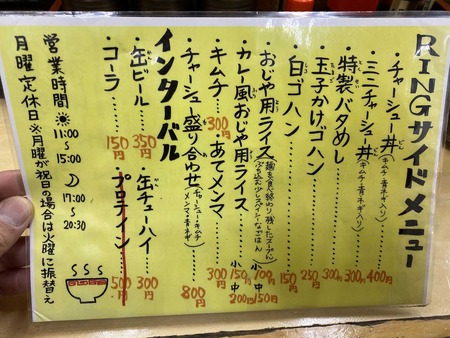 RINGサイドメニュー
・チャーシュー丼(キムチ・青ネギ入り) 400円
・ミニチャーシュー丼(キムチ・青ネギ入り) 300円
・特製バタめし 300円
・玉子かけゴハン 250円
・白ゴハン 150円
・おじや用ライス 小100円 中150円
・カレー風おじや用ライス 小150円 中200円
・キムチ 300円
・あてメンマ 300円
・チャーシュー盛り合わせ(チャーシュー・キムチ メンマ・青ネギ) 800円
インターバル
・缶ビール 350円
・缶チューハイ 300円
・コーラ 150円
・プロテイン 500円
営業時間 11:00〜15:00 17:00〜20:30
月曜定休日※月曜が祝日の場合は火曜に振替え